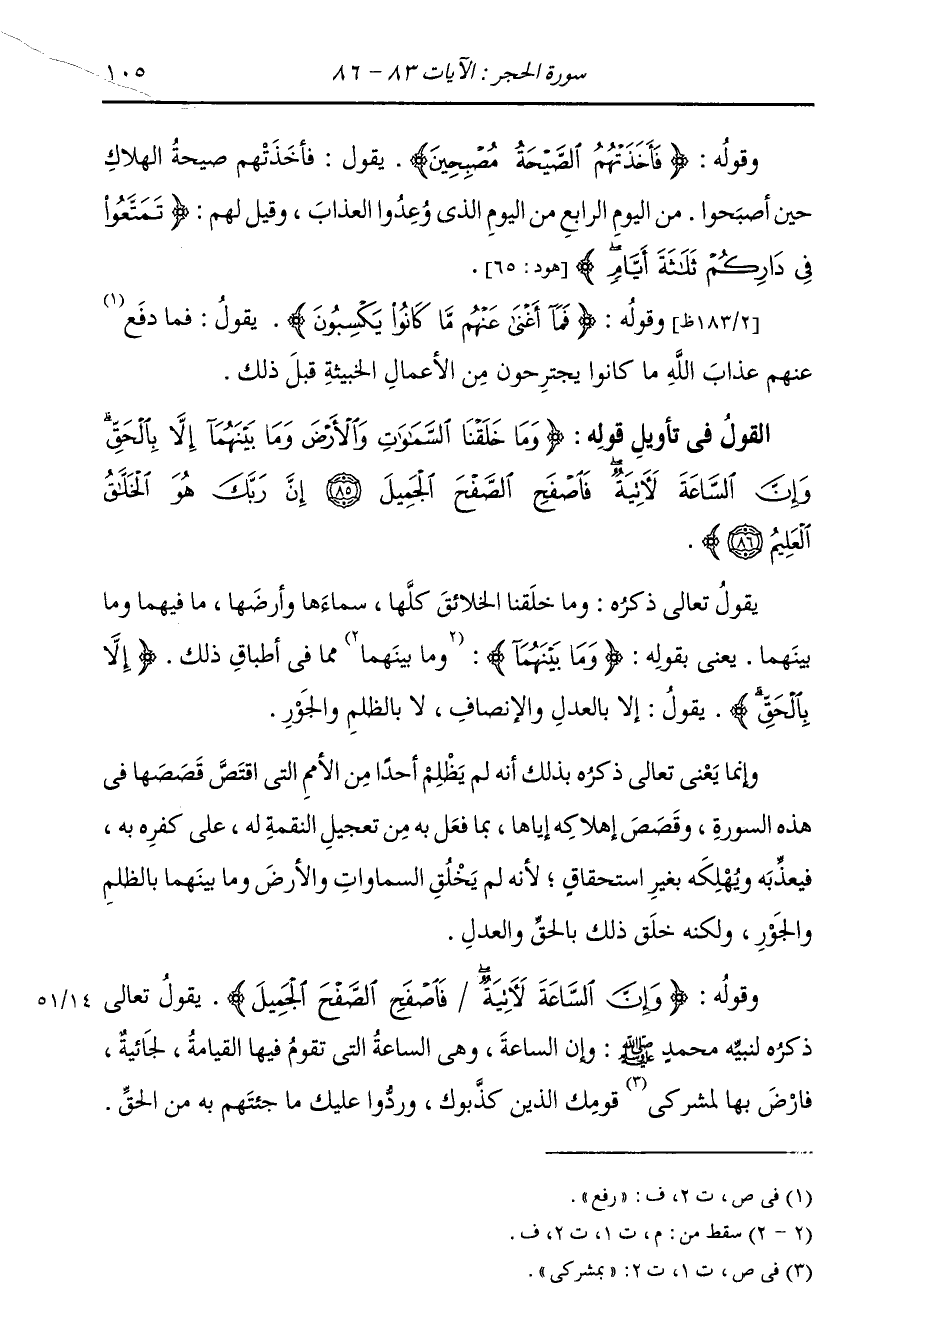 سورة الحجر : الآيات ٨٣ - ٨٦ ١٠٥
وقولُه : ﴿ فَأَخَذَتْهُمُ ٱلصَّيْحَةُ مُصْبِحِينَ﴾ . يقول : فأخَذَتْهم صيحةُ الهلاكِ
حين أصبَحوا . من اليومِ الرابعِ من اليومِ الذى وُعِدُوا العذابَ ، وقيل لهم : ﴿ تَمَتَّعُوا۟
فِى دَارِكُمْ ثَلَٰثَةَ أَيَّامٍۖ ﴾ [هود: ٦٥] .
[١٨٣/٢ظ] وقولُه : ﴿ فَمَآ أَغْنَىٰ عَنْهُم مَّا كَانُوا۟ يَكْسِبُونَ ﴾ . يقولُ : فما دفَع(١)
عنهم عذابَ اللَّهِ ما كانوا يجترِحون مِن الأعمالِ الخبيثةِ قبلَ ذلك .
القولُ فى تأويلِ قولِه : ﴿ وَمَا خَلَقْنَا ٱلسَّمَٰوَٰتِ وَٱلْأَرْضَ وَمَا بَيْنَهُمَآ إِلَّا بِٱلْحَقِّۗ
وَإِنَّ ٱلسَّاعَةَ لَأٓتِيَةٌۖ فَٱصْفَحِ ٱلصَّفْحَ ٱلْجَمِيلَ ﴿٨٥﴾ إِنَّ رَبَّكَ هُوَ ٱلْخَلَّٰقُ
ٱلْعَلِيمُ ﴿٨٦﴾ ﴾ .
يقولُ تعالى ذكرُه : وما خلَقنا الخلائقَ كلَّها ، سماءَها وأرضَها ، ما فيهما وما
بينَهما . يعنى بقولِه : ﴿ وَمَا بَيْنَهُمَآ ﴾ : (٢وما بينَهما٢) مما فى أطباقِ ذلك . ﴿ إِلَّا
بِٱلْحَقِّۗ ﴾ . يقولُ : إلا بالعدلِ والإنصافِ ، لا بالظلمِ والجَوْرِ .
وإنما يَعْنى تعالى ذكرُه بذلك أنه لم يَظْلِمْ أحدًا مِن الأممِ التى اقتَصَّ قَصَصَها فى
هذه السورةِ ، وقَصَصَ إهلاكِه إياها ، بما فعَل به مِن تعجيلِ النقمةِ له ، على كفرِه به ،
فيعذِّبَه ويُهْلِكَه بغيرِ استحقاقٍ ؛ لأنه لم يَخْلُقِ السماواتِ والأرضَ وما بينَهما بالظلمِ
والجَوْرِ ، ولكنه خلَق ذلك بالحقِّ والعدلِ .
وقولُه : ﴿ وَإِنَّ ٱلسَّاعَةَ لَأٓتِيَةٌۖ / فَٱصْفَحِ ٱلصَّفْحَ ٱلْجَمِيلَ ﴾ . يقولُ تعالى ٥١/١٤
ذكرُه لنبيِّه محمدٍ ﷺ : وإن الساعةَ ، وهى الساعةُ التى تقومُ فيها القيامةُ ، لجَائيةٌ ،
فارْضَ بها لمشركى(٣) قومِك الذين كذَّبوك ، وردُّوا عليك ما جئتَهم به من الحقِّ .
(١) فى ص ، ت ٢، ف : «رفع» .
(٢ - ٢) سقط من : م ، ت ١، ت ٢، ف .
(٣) فى ص ، ت ١، ت ٢: «بمشركى» .